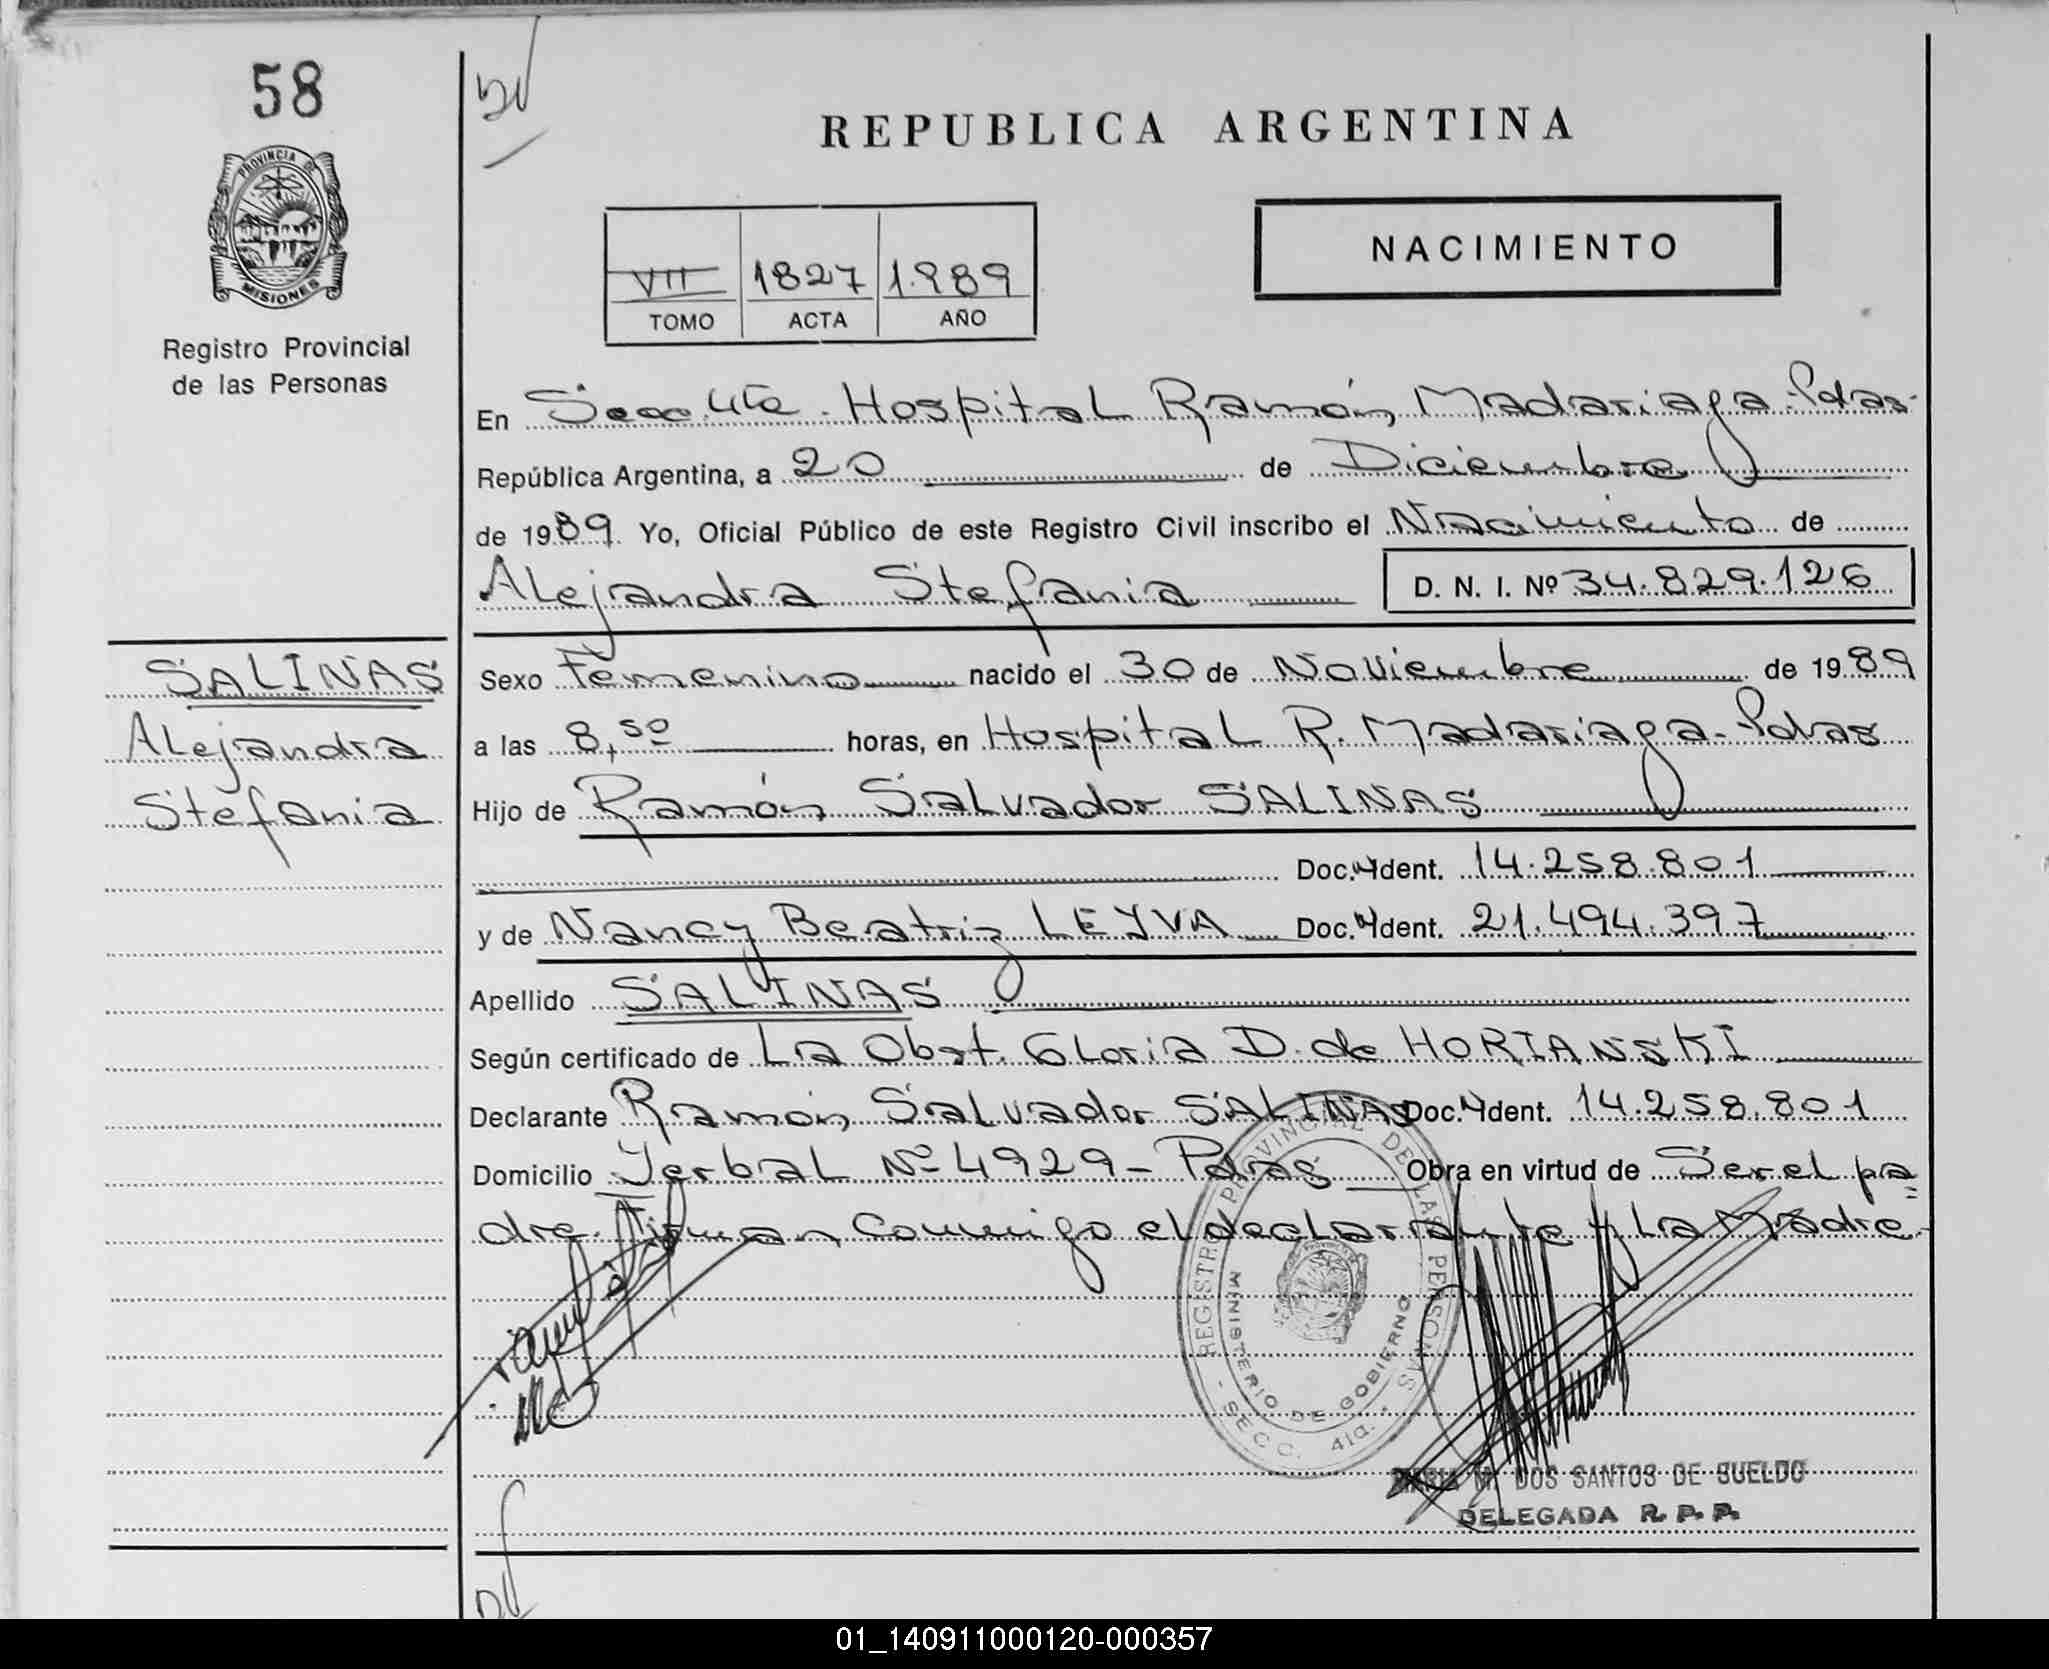 58
REPUBLICA ARGENTINA
PROVINCIA DE
MISIONES
Registro Provincial
de las Personas
NACIMIENTO
VII 1827 1.989
TOMO ACTA AÑO
En Secc. 4ta. Hospital Ramón Madariaga - Pdas.
República Argentina, a 20 de Diciembre
de 1989 Yo, Oficial Público de este Registro Civil inscribo el Nacimiento de
Alejandra Stefania D. N. I. Nº 34.829.126
SALINAS
Alejandra
Stefania
Sexo Femenino nacido el 30 de Noviembre de 1989
a las 8,50 horas, en Hospital R. Madariaga - Pdas
Hijo de Ramón Salvador SALINAS
Doc. Ident. 14.258.801
y de Nancy Beatriz LEYVA Doc. Ident. 21.494.397
Apellido SALINAS
Según certificado de La Obst. Gloria D. de HORIANSKI
Declarante Ramón Salvador SALINAS Doc. Ident. 14.258.801
Domicilio Yerbal Nº 4929 - Pdas Obra en virtud de Ser el pa=
dre. Firman conmigo el declarante y La Madre
REGISTRO PROVINCIAL DE LAS PERSONAS
MINISTERIO DE GOBIERNO
- SECC. 4ta. -
MARIA M. DOS SANTOS DE SUELDO
DELEGADA R. P. P.
01_140911000120-000357